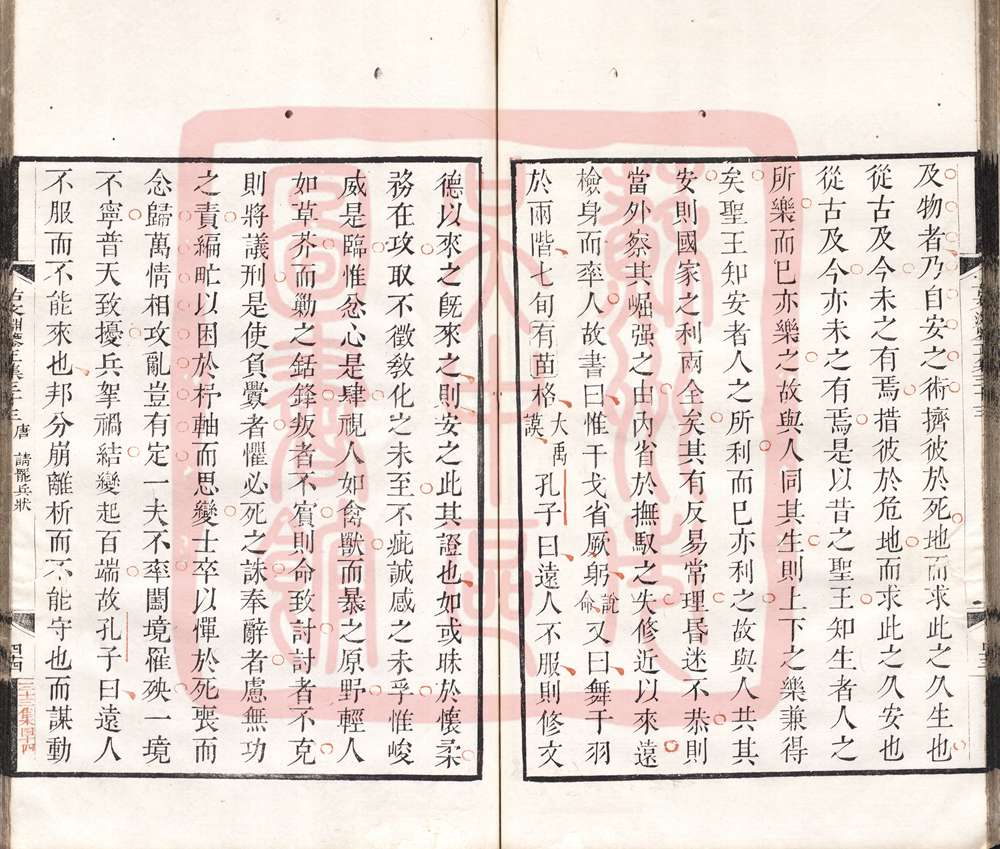 及物者乃自安之術擠彼於死地而求此之久生也
從古及今未之有焉措彼於危地而求此之久安也
從古及今亦未之有焉是以昔之聖王知生者人之
所樂而已亦樂之故與人同其生則上下之樂兼得
矣聖王知安者人之所利而已亦利之故與人共其
安則國家之利兩全矣其有反易常理昏迷不恭則
當外察其崛强之由內省於撫馭之失修近以來遠
檢身而率人故書曰惟干戈省厥躬說命又曰舞干羽
於兩階七旬有苗格大禹謨孔子曰遠人不服則修文
德以來之旣來之則安之此其證也如或昧於懷柔
務在攻取不徵敎化之未至不疵誠感之未孚惟峻
威是臨惟忿心是肆視人如禽獸而暴之原野輕人
如草芥而勦之銛鋒叛者不賓則命致討討者不克
則將議刑是使負釁者懼必死之誅奉辭者慮無功
之責編甿以困於杼軸而思變士卒以憚於死喪而
念歸萬情相攻亂豈有定一夫不率闔境罹殃一境
不寧普天致擾兵挐禍結變起百端故孔子曰遠人
不服而不能來也邦分崩離析而不能守也而謀動
古文淵鑒正集三十三 唐 請罷兵狀 四四
三十三集四十四